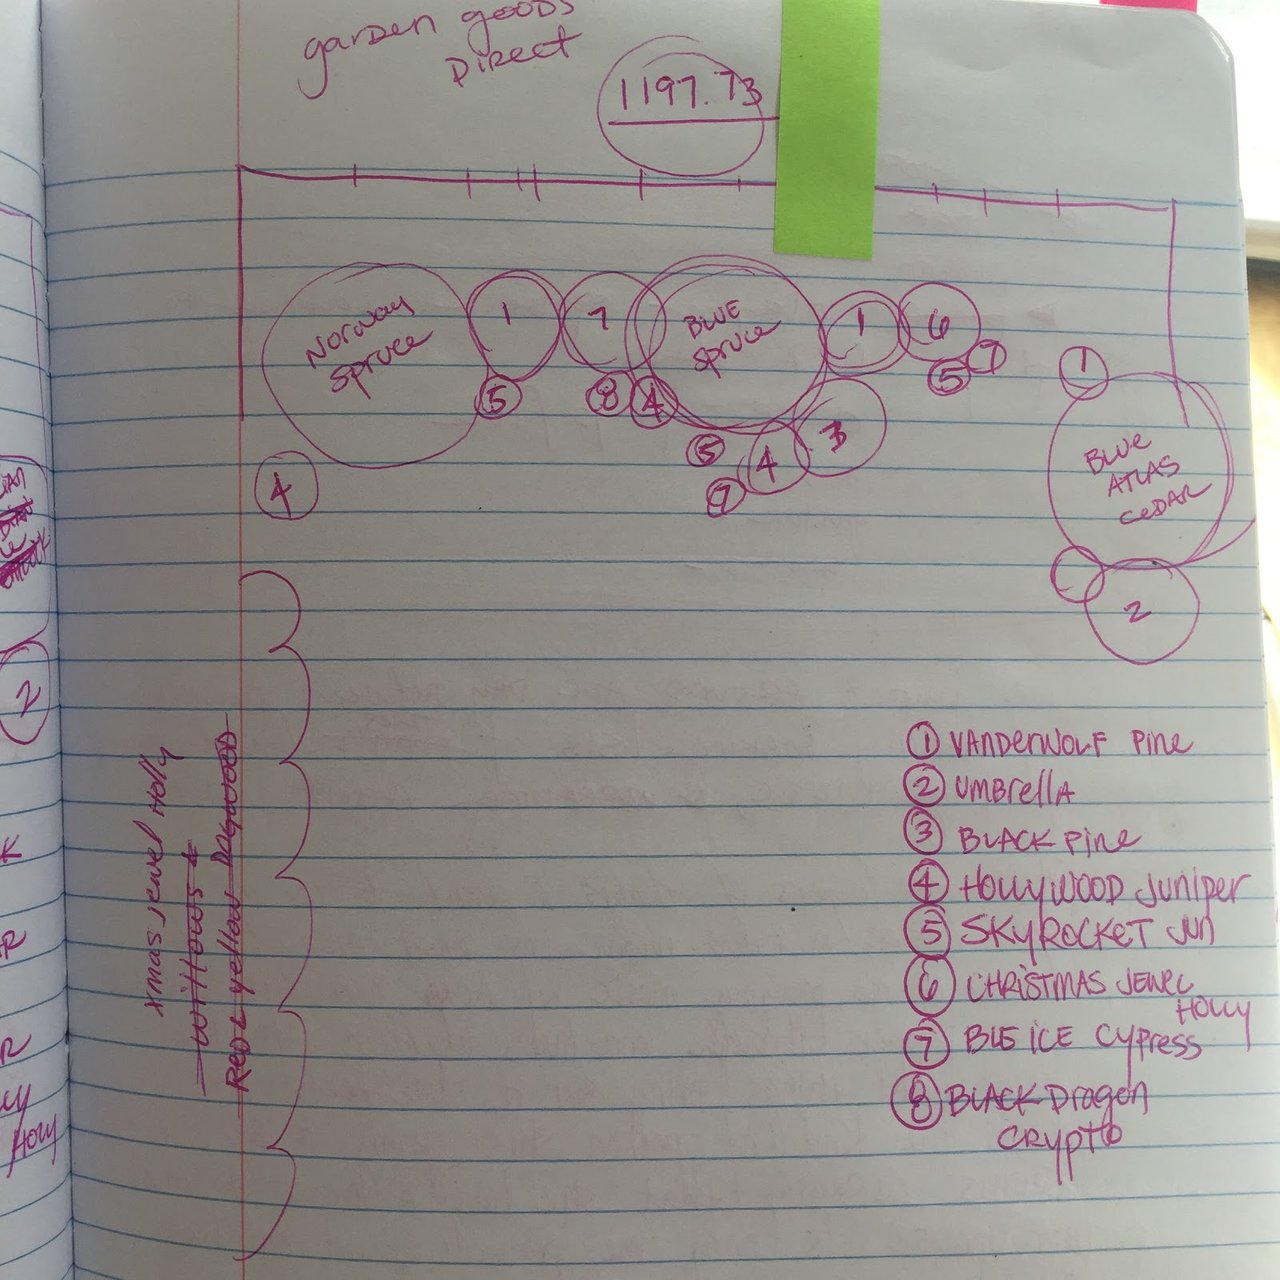 garden goods
Direct
1197.73
Norway
Spruce
1
7
BLUE
Spruce
1
6
7
5
1
5
8
4
3
5
4
7
4
BLUE
ATLAS
CEDAR
2
2
xmas jewel Holly
Willows &
Red & yellow Dogwood
① VANDERWOLF PINE
② UMBrellA
③ BLACK PINE
④ HOLLYWOOD JUNIPER
⑤ SKYROCKET JUN
⑥ CHRISTMAS JEWEL
HOLLY
⑦ BLE ICE CYPRESS
⑧ BLACK Dragon
CRYPTO
K
R
R
Holly